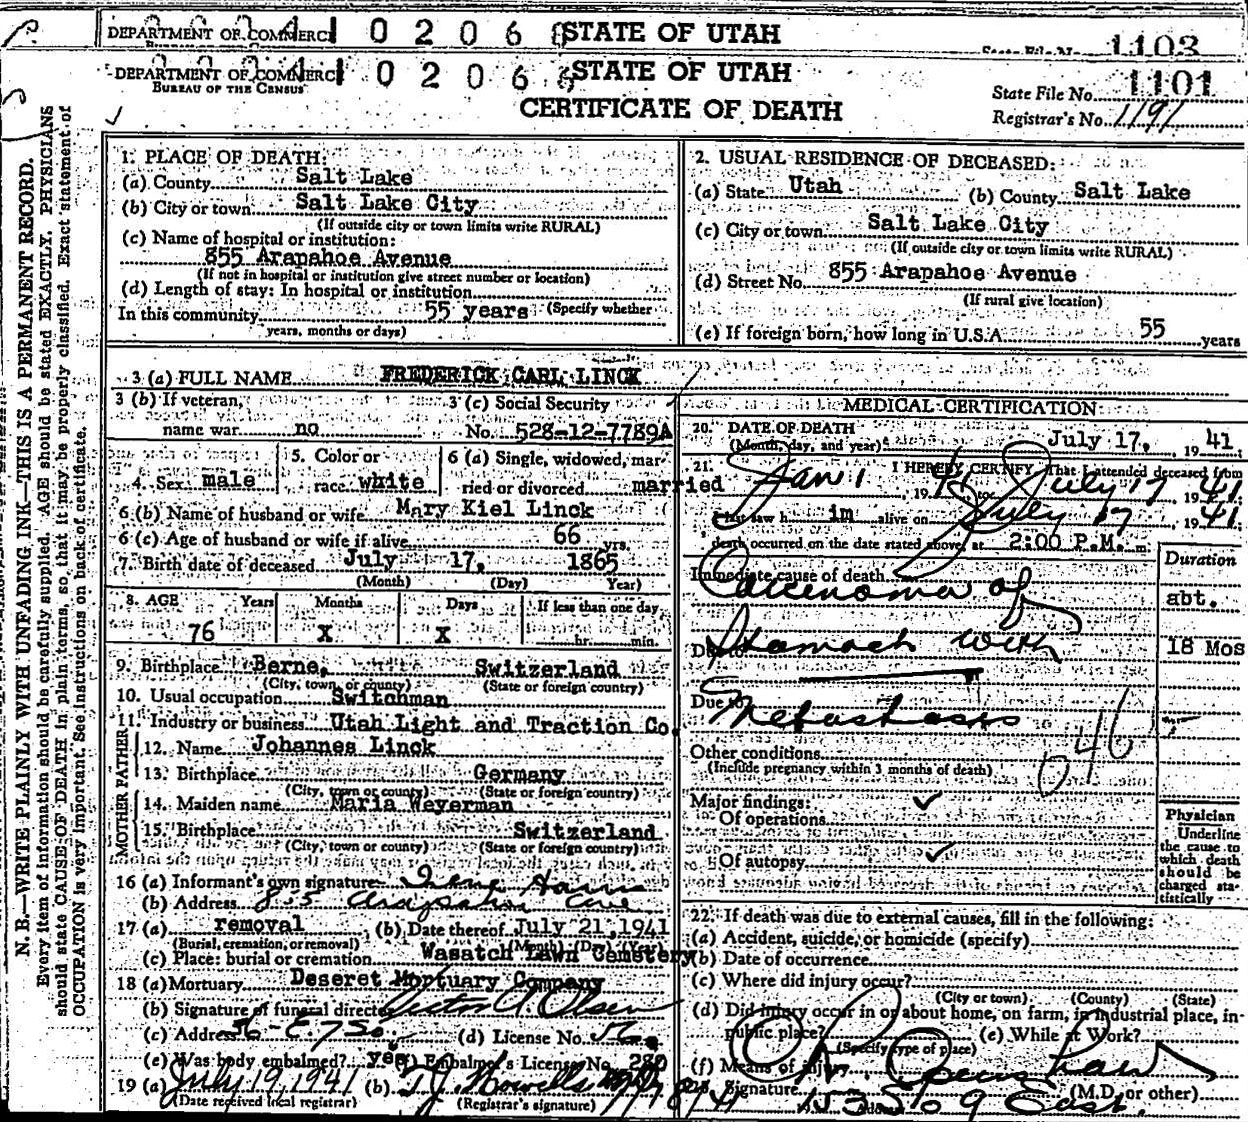 DEPARTMENT OF COMMERC 41 0 2 0 6 STATE OF UTAH
1103
DEPARTMENT OF COMMERC 41 0 2 0 6 STATE OF UTAH
BUREAU OF THE CENSUS
CERTIFICATE OF DEATH
State File No. 1101
Registrar's No. 1191
N. B.—WRITE PLAINLY WITH UNFADING INK—THIS IS A PERMANENT RECORD.
Every item of information should be carefully supplied. AGE should be stated EXACTLY. PHYSICIANS
should state CAUSE OF DEATH in plain terms, so that it may be properly classified. Exact statement of
OCCUPATION is very important. See instructions on back of certificate.
1. PLACE OF DEATH:
(a) County Salt Lake
(b) City or town Salt Lake City
(If outside city or town limits write RURAL)
(c) Name of hospital or institution:
855 Arapahoe Avenue
(If not in hospital or institution give street number or location)
(d) Length of stay: In hospital or institution
In this community 55 years (Specify whether
years, months or days)
2. USUAL RESIDENCE OF DECEASED:
(a) State Utah (b) County Salt Lake
(c) City or town Salt Lake City
(If outside city or town limits write RURAL)
(d) Street No. 855 Arapahoe Avenue
(If rural give location)
(e) If foreign born, how long in U.S.A. 55 years
3 (a) FULL NAME FREDERICK CARL LINCK
3 (b) If veteran, 3 (c) Social Security
name war no No. 528-12-7789A
4. Sex male
5. Color or
race white
6 (a) Single, widowed, mar-
ried or divorced married
6 (b) Name of husband or wife Mary Kiel Linck
6 (c) Age of husband or wife if alive 66 yrs.
7. Birth date of deceased July 17, 1865
(Month) (Day) Year)
8. AGE Years Months Days If less than one day
76 X X hr. min.
9. Birthplace Berne, Switzerland
(City, town, or county) (State or foreign country)
10. Usual occupation Switchman
11. Industry or business Utah Light and Traction Co.
FATHER
12. Name Johannes Linck
13. Birthplace Germany
(City, town or county) (State or foreign country)
MOTHER
14. Maiden name Maria Weyerman
15. Birthplace Switzerland
(City, town or county) (State or foreign country)
16 (a) Informant's own signature Irene
(b) Address Ave
17 (a) removal (b) Date thereof July 21, 1941
(Burial, cremation, or removal) (Month) (Day) (Year)
(c) Place: burial or cremation Wasatch Lawn Cemetery
18 (a) Mortuary Deseret Mortuary Company
(b) Signature of funeral director Victor Olsen
(c) Address 36-E. 7 So. (d) License No.
(e) Was body embalmed? yes (f) Embalmer's License No. 280
19 (a) July 19, 1941 (b) T.J. Howells
(Date received local registrar) (Registrar's signature)
MEDICAL CERTIFICATION
20. DATE OF DEATH
(Month, day, and year) July 17, 1941
21. I HEREBY CERTIFY, That I attended deceased from
Jan 1, 1941 to July 17 1941
I last saw him alive on July 17, 1941
death occurred on the date stated above, at 2:00 P.M. m.
Duration
Immediate cause of death Carcinoma of abt.
Due to Stomach with 18 Mos
Due to Metastasis
046
Other conditions
(Include pregnancy within 3 months of death)
Major findings:
Of operations
Of autopsy
Physician
Underline
the cause to
which death
should be
charged sta-
tistically
22. If death was due to external causes, fill in the following:
(a) Accident, suicide, or homicide (specify)
(b) Date of occurrence
(c) Where did injury occur?
(City or town) (County) (State)
(d) Did injury occur in or about home, on farm, in industrial place, in
public place? (e) While at Work?
(Specify type of place)
(f) Means of injury
Signature (M.D. or other)
Address 9 East.